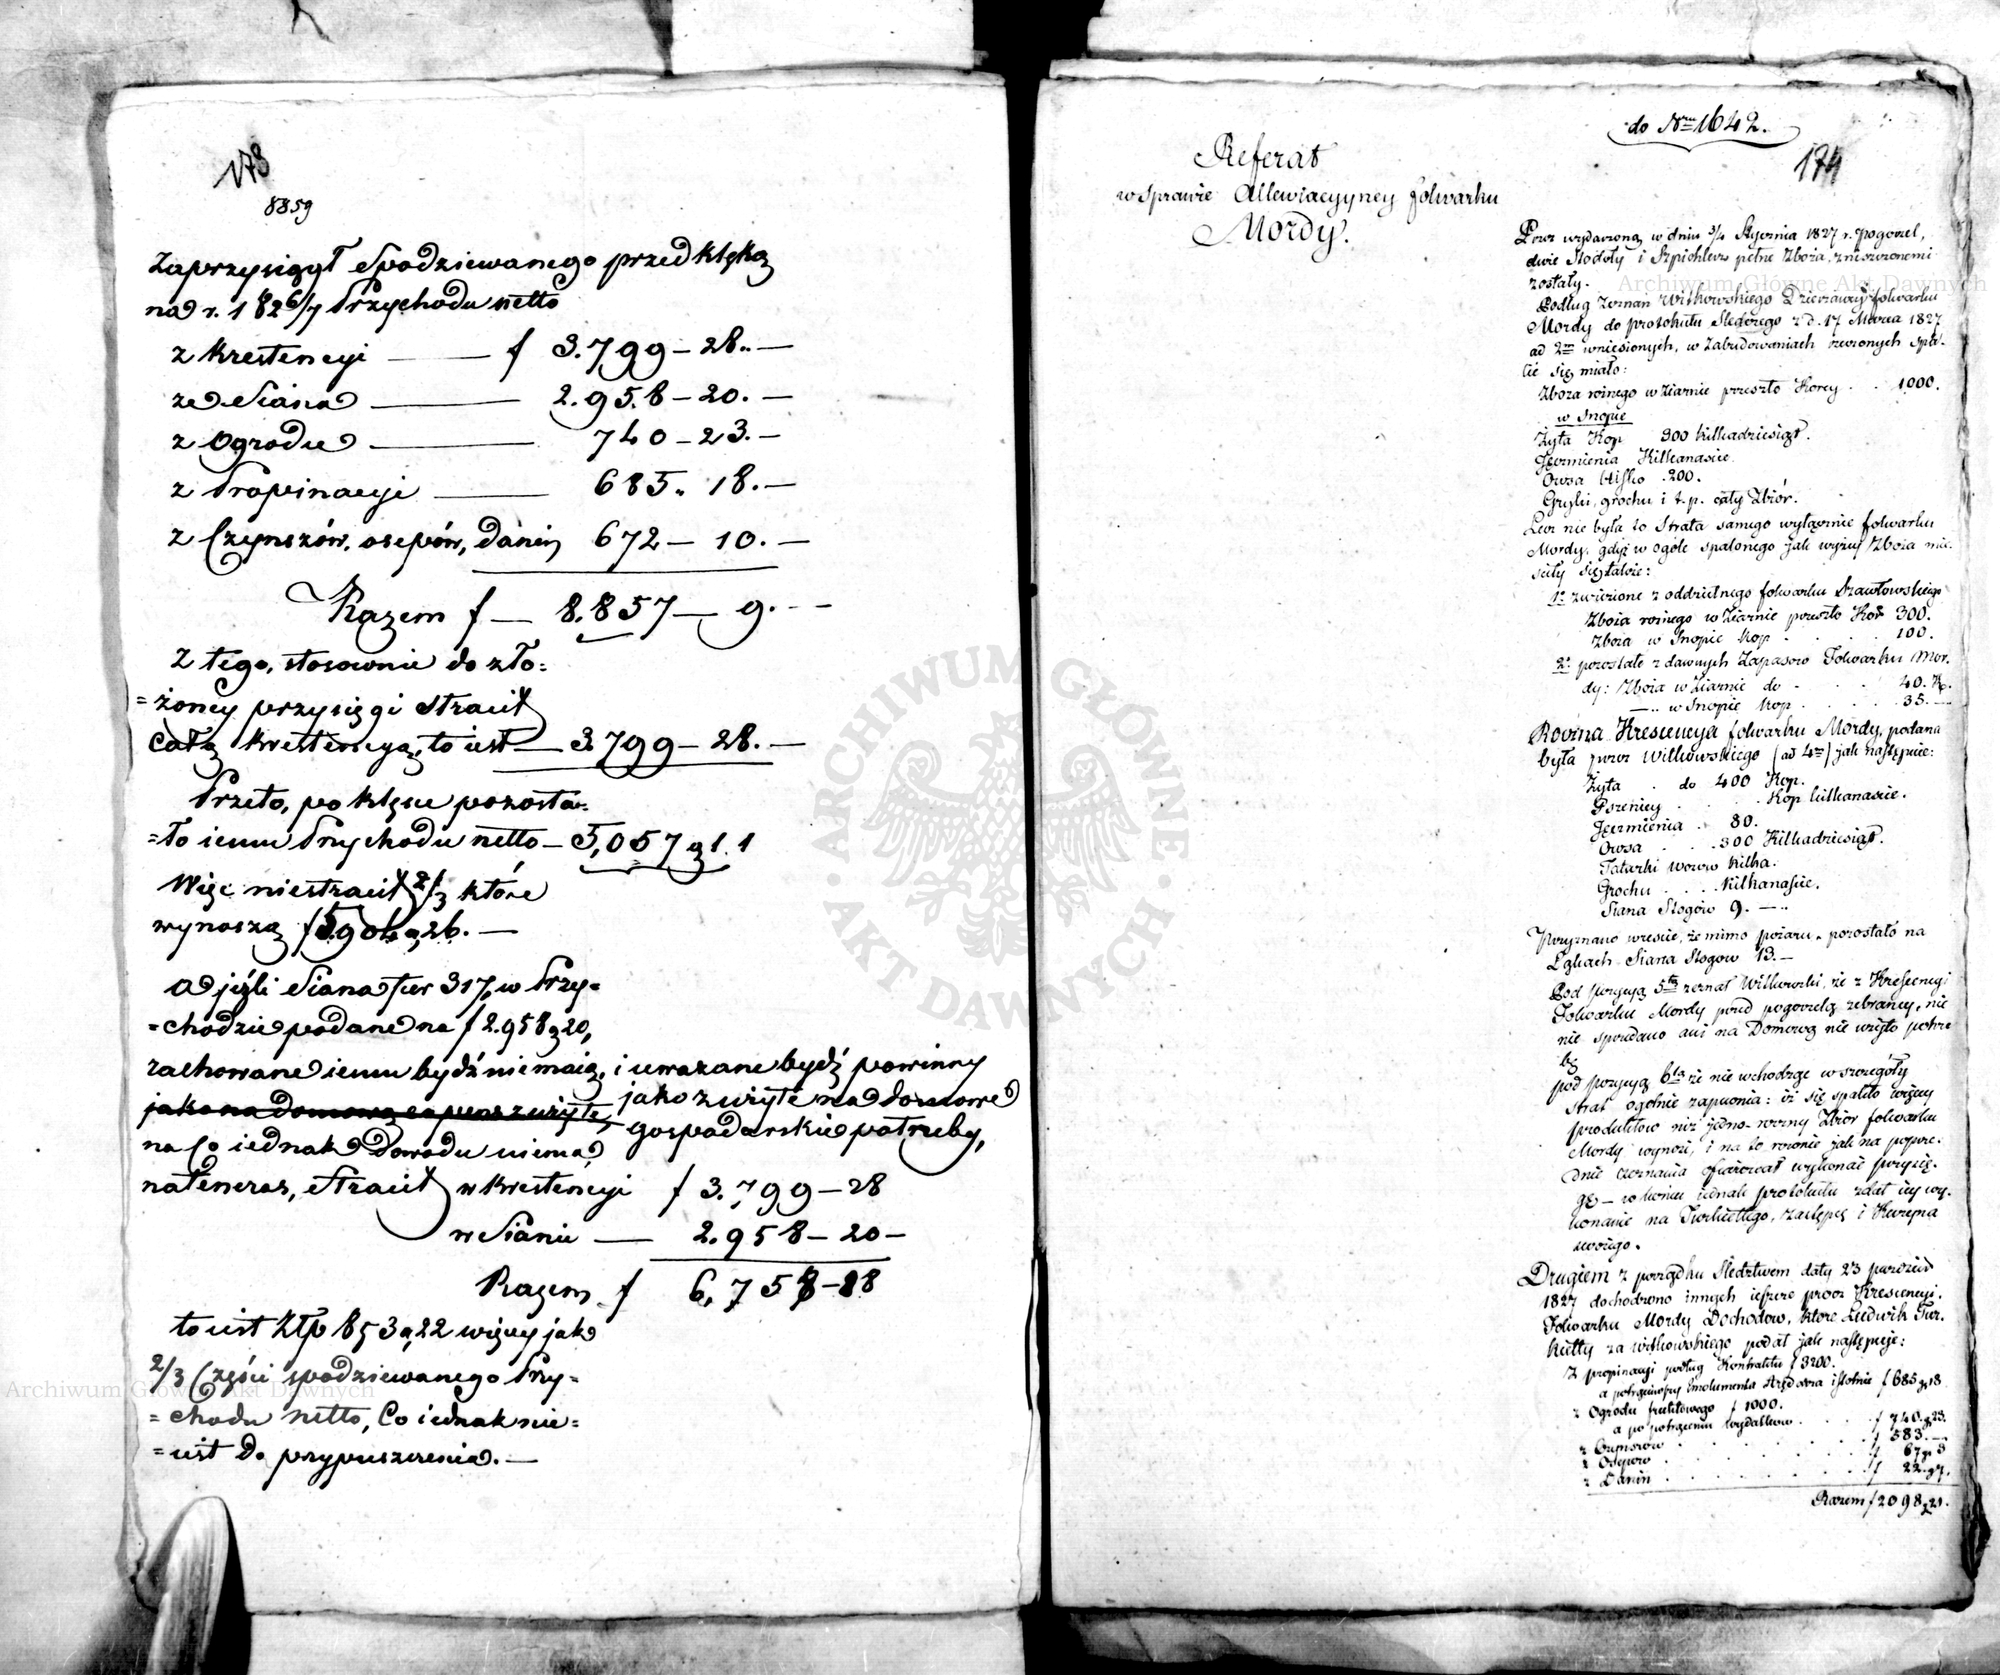 173
8859
Zaprzysiągł Spodziewanego przed klęską
na r. 1826/7 Przychodu netto
z krestencyi — f 3.799 – 28. –
ze Siana — 2.958 – 20. –
z Ogrodu — 740 – 23. –
z Propinacyi — 685. 18. –
z Czynszów, osepów, danin 672 – 10. –
Razem f — 8.857 — 9. –
z tego, stosownie do zło:
=żoney przysięgi stracił
całą krestencyą, to iest — 3.799 – 28. –
Przeto, po klęsce pozosta:
=ło iemu Przychodu netto – 5,057 g 11
Więc niestracił 2/3 które
wynoszą f 5.904 g 26. –
a jeźli Siana fur 317, w Przy=
=chodzie podane na f 2.958 g 20,
zachowane iemu bydź niemaią, i uważane bydź powinny
jako na domową
jako zużyte na domowe
gospodarskie potrzeby,
na co iednak dowodu niema,
natenczas, stracił w krestencyi f 3.799 – 28
w Sianie — 2.958 – 20 –
Razem f 6,758 – 18
to iest Złp 853 g 22 więcey jak
2/3 Części spodziewanego Przy=
=chodu netto, Co iednak nie=
=iest do przypuszczenia. –
do Nru 1642.
174
Referat
w sprawie Allewiacyyney folwarku
Mordy.
Przez wydarzoną w dniu 3/4 Stycznia 1827 r. pogorzel,
dwie Stodoły i Szpichlerz pełne zboża, zniszczonemi
zostały.
Podług zeznań Witkowskiego Dzierzawcy folwarku
Mordy do protokułu Śledczego z d. 17 Marca 1827
ad 2m wniesionych, w zabudowaniach rzeczonych spa-
lić się miało:
Zboża rożnego w Ziarnie przeszło Korcy . . 1000.
w Snopie
Żyta Kop 300 kilkadziesiąt.
Jęczmienia Kilkanaście.
Owsa blisko 200.
Gryki, grochu i t.p. cały Zbiór.
Lecz nie była to Strata samego wyłącznie folwarku
Mordy, gdyż w ogóle spalonego jak wyżey Zboża mie-
ściły się także:
1o zwiezione z oddzielnego folwarku
Zboża rożnego w Ziarnie przeszło Kor 300.
Zboża w Snopie kop . . . . 100.
2o pozostałe z dawnych Zapasow Folwarku Mor-
dy: Zboża w Ziarnie do . . . 40. K.
—.. w Snopie kop . . . . 35. —
Roczna Krescencya folwarku Mordy, podana
była przez Witkowskiego (ad 4m) jak następuie:
Żyta . do 400 Kop.
Pszenicy . . . Kop kilkanaście.
Jęczmienia . 80.
Owsa . . . 300 Kilkadziesiąt.
Tatarki wozow kilka.
Grochu . . . . kilkanaście.
Siana Stogów 9. —..
Przyznano wreście, że mimo pożaru, pozostało na
Łąkach Siana Stogow 13. —
Pod pozycyą 5tą zeznał Witkowski, że z Krescencyi
Folwarku Mordy przed pogorzelą zebraney, nic
nie sprzedano ani na Domową nie użyto potrze
bę
pod pozycyą 6tą że nie wchodząc w szczegóły
strat ogólnie zapewnia: iż się spaliło więcey
produktow niż jedno-roczny Zbiór folwarku
Mordy wynosi, i na to rownie jak na poprze-
dnie zeznania ofiarował wykonać przysię-
gę – w końcu iednak protokułu zdał iey wy-
konanie na Turkiettego, zastępcę i Kuzyna
swoiego.
Drugiem z porządku Śledztwem daty 23 paźdz
1827 dochodzono innych ieszcze procz Krescencyi,
Folwarku Mordy Dochodow, ktore Ludwik Tur-
kietty za Witkowskiego podał jak następuje:
z propinacyi podług Kontraktu f 3200.
a potrąciwszy Emolumenta Arędarza istotnie f 685 g 18
z Ogrodu fruktowego f 1000.
a po potrąceniu wydatkow . . . . f 740 g 23.
z Czynszow . . . . f 583. —
z Osepow . . . . f 67 g 3
z Danin . . . . f 22. g 7.
Razem f 2098 g 21.
Archiwum Główne Akt Dawnych
Archiwum Główne Akt Dawnych
ARCHIWUM GŁÓWNE AKT DAWNYCH